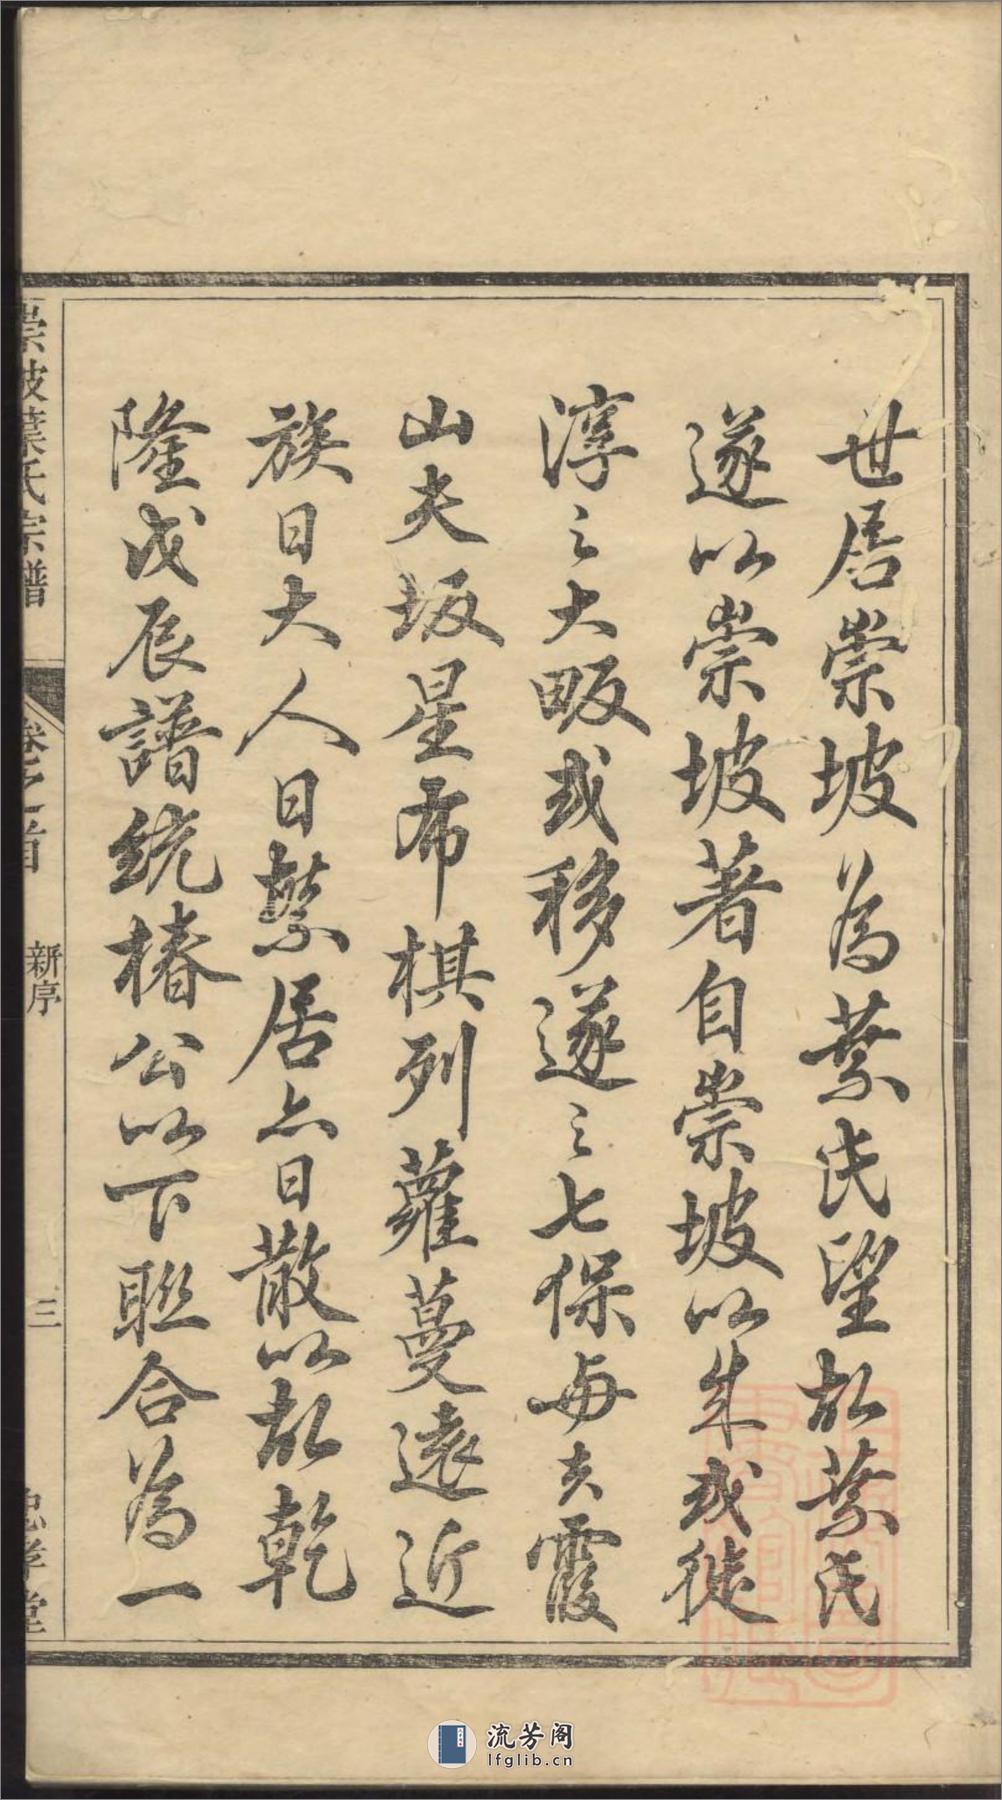 世居崇坡為葉氏望故葉氏
遂以崇坡著自崇坡以來或徙
淳之大畈或移遂之七保與夫霞
山夫坂星布棋列蘿蔓遠近
族日大人日繁居亦日散以故乾
隆戊辰譜統椿公以下聯合為一
崇坡葉氏宗譜
卷之首
新序
三
忠孝堂
流芳阁
lfglib.cn